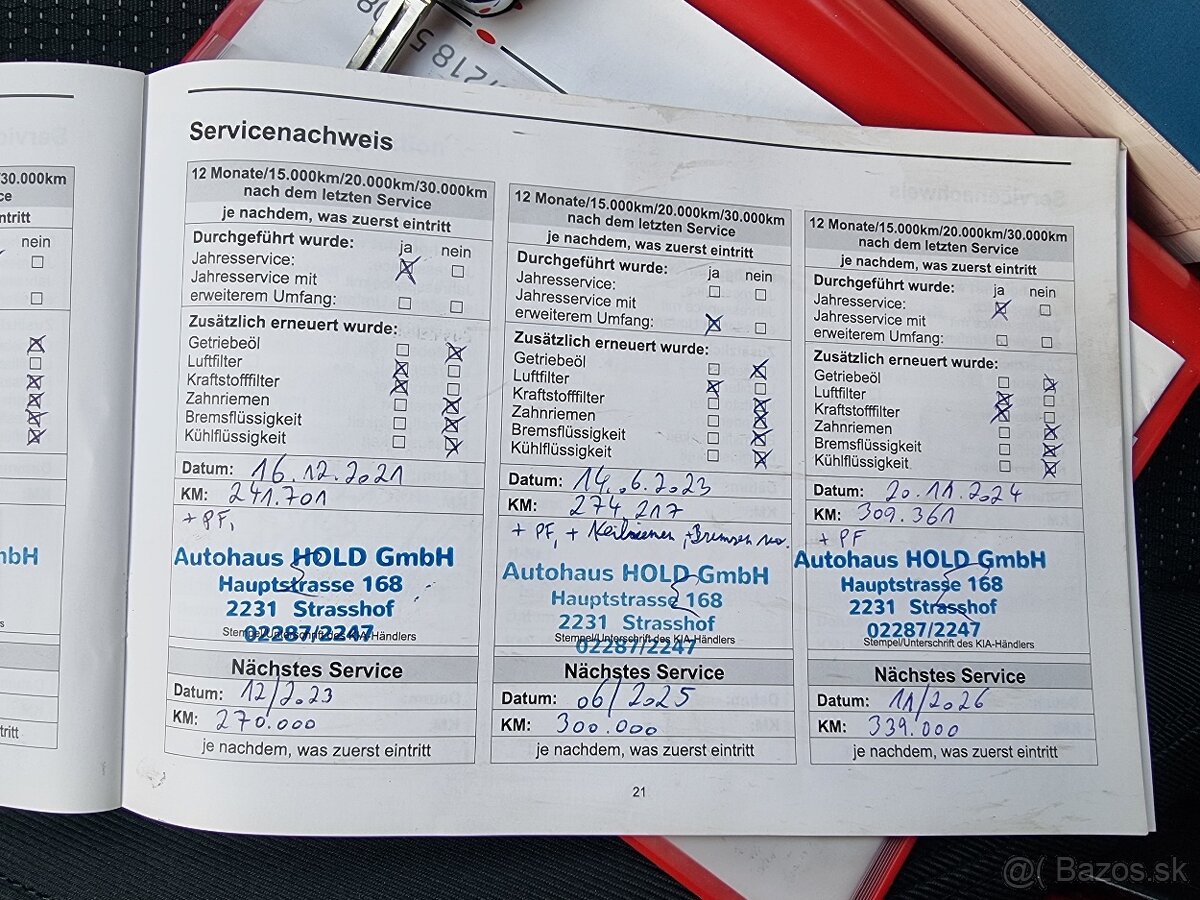 7218 5
30.000km
ce
ntritt
nein
Servicenachweis
12 Monate/15.000km/20.000km/30.000km
nach dem letzten Service
je nachdem, was zuerst eintritt
Durchgeführt wurde: ja nein
Jahresservice:
Jahresservice mit
erweiterem Umfang:
Zusätzlich erneuert wurde:
Getriebeöl
Luftfilter
Kraftstofffilter
Zahnriemen
Bremsflüssigkeit
Kühlflüssigkeit
Datum: 16.12.2021
KM: 241.701
+ PF,
Autohaus HOLD GmbH
Hauptstrasse 168
2231 Strasshof
02287/2247
Stempel/Unterschrift des KIA-Händlers
Nächstes Service
Datum: 12/2023
KM: 270.000
je nachdem, was zuerst eintritt
12 Monate/15.000km/20.000km/30.000km
nach dem letzten Service
je nachdem, was zuerst eintritt
Durchgeführt wurde: ja nein
Jahresservice:
Jahresservice mit
erweiterem Umfang:
Zusätzlich erneuert wurde:
Getriebeöl
Luftfilter
Kraftstofffilter
Zahnriemen
Bremsflüssigkeit
Kühlflüssigkeit
Datum: 14.06.2023
KM: 274.217
+ PF, + Keilriemen, + Bremsen
Autohaus HOLD GmbH
Hauptstrasse 168
2231 Strasshof
02287/2247
Stempel/Unterschrift des KIA-Händlers
Nächstes Service
Datum: 06/2025
KM: 300.000
je nachdem, was zuerst eintritt
12 Monate/15.000km/20.000km/30.000km
nach dem letzten Service
je nachdem, was zuerst eintritt
Durchgeführt wurde: ja nein
Jahresservice:
Jahresservice mit
erweiterem Umfang:
Zusätzlich erneuert wurde:
Getriebeöl
Luftfilter
Kraftstofffilter
Zahnriemen
Bremsflüssigkeit
Kühlflüssigkeit
Datum: 20.11.2024
KM: 309.361
+ PF
Autohaus HOLD GmbH
Hauptstrasse 168
2231 Strasshof
02287/2247
Stempel/Unterschrift des KIA-Händlers
Nächstes Service
Datum: 11/2026
KM: 339.000
je nachdem, was zuerst eintritt
21
mbH
tritt
Bazos.sk